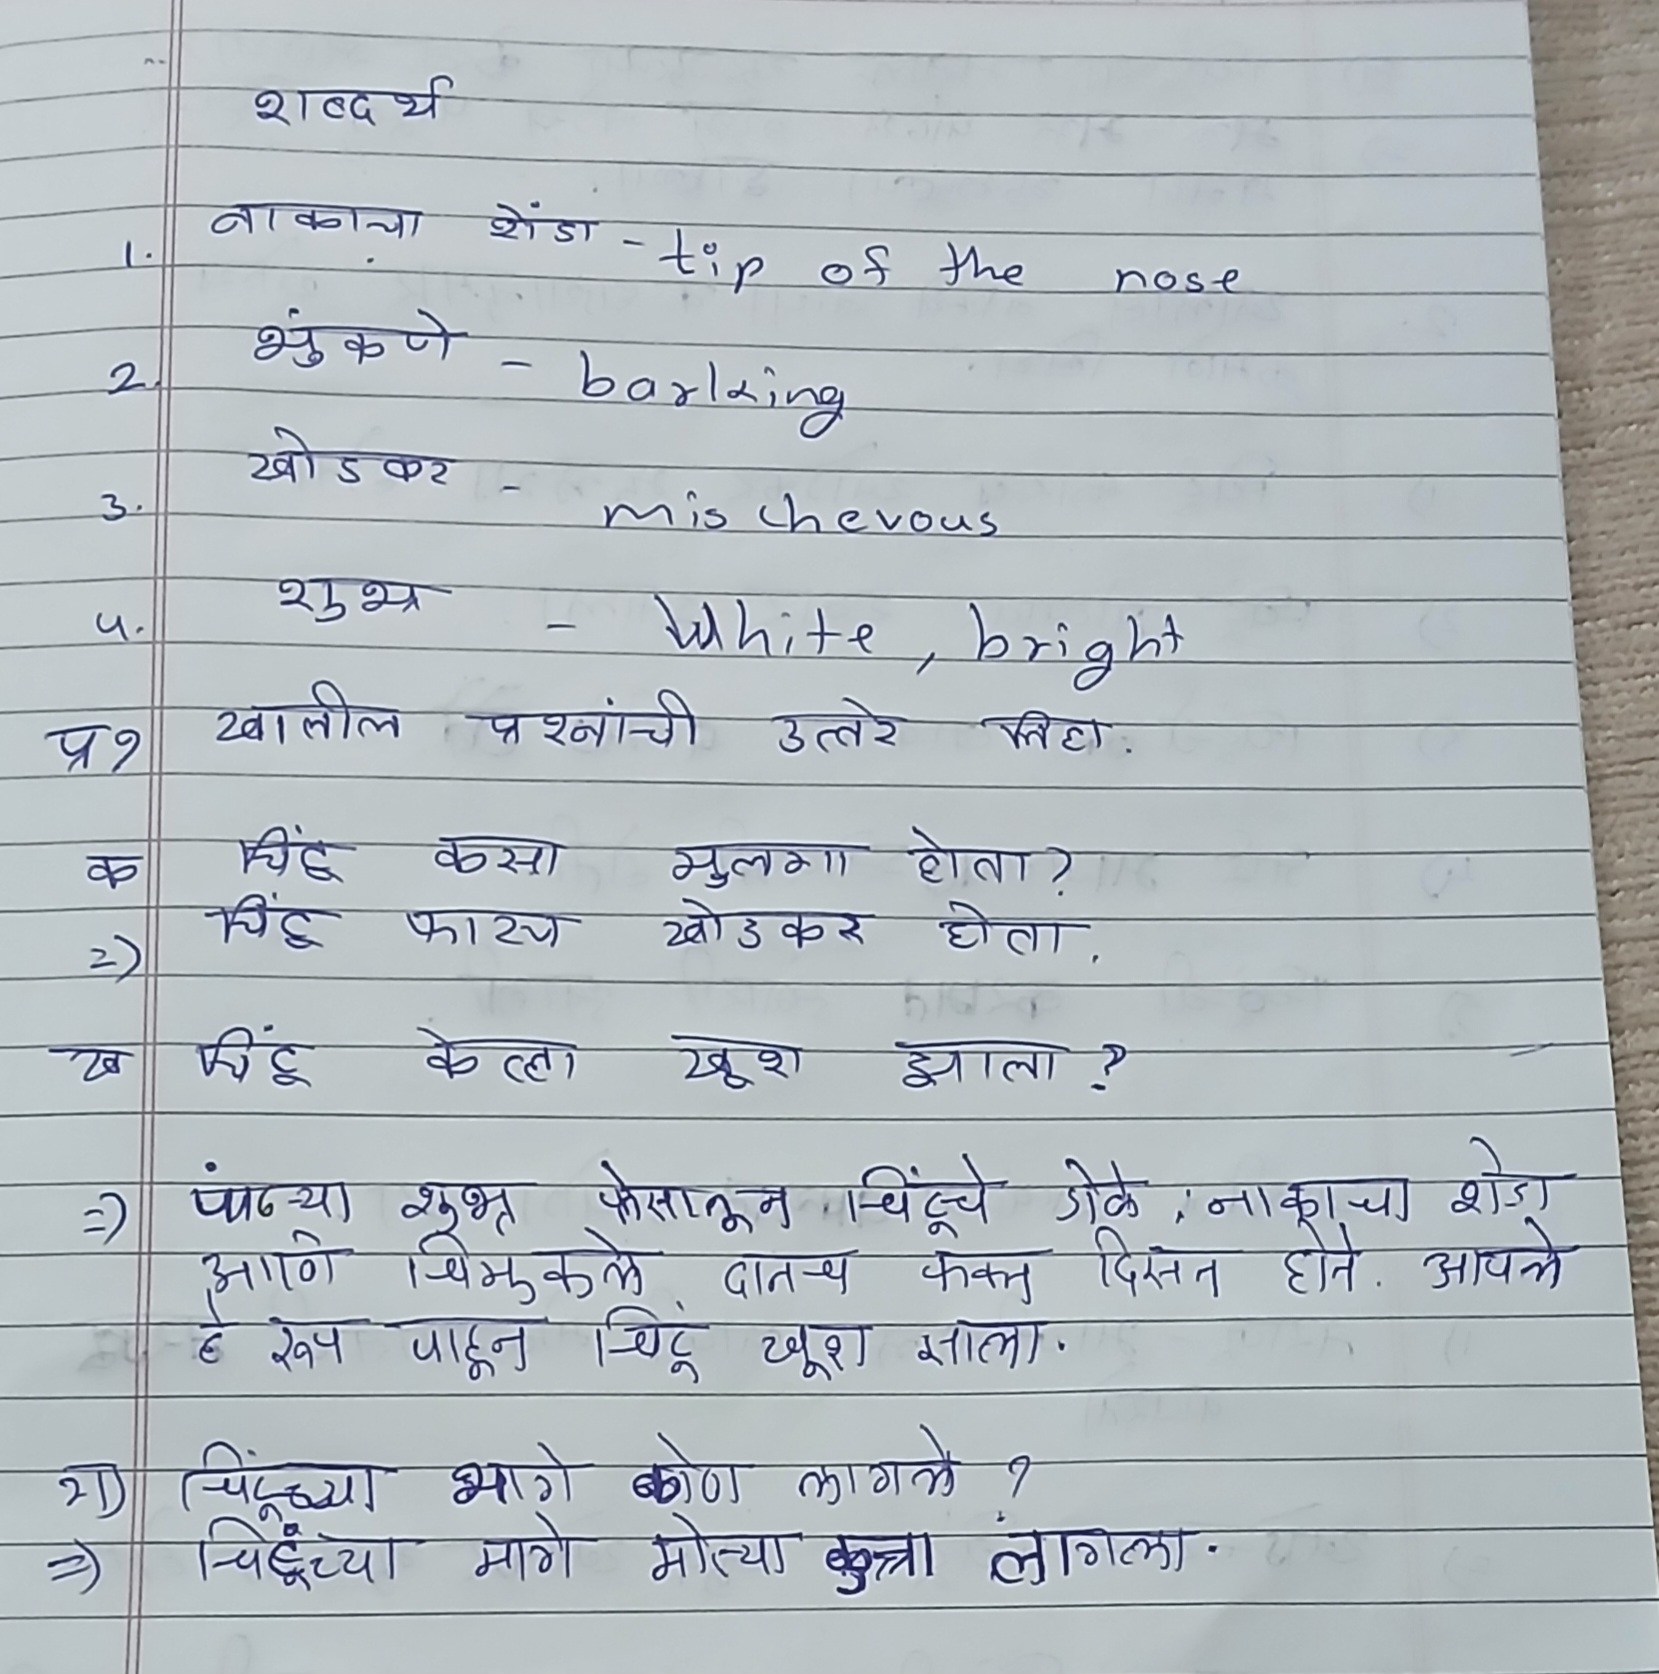 शब्दर्थ
1. नाकाचा शेंडा - tip of the nose
2. भुंकणे - barking
3. खोडकर - mischevous
4. शुभ्र - White, bright
प्र१ खालील प्रश्नांची उत्तरे लिहा.
क चिंटू कसा मुलगा होता?
=) चिंटू फारच खोडकर होता.
ख चिंटू केव्हा खूश झाला?
=) पांढऱ्या शुभ्र फेसातून चिंटूचे डोके, नाकाचा शेंडा
आणि चिमुकले दातच फक्त दिसत होते. आपले
हे रूप पाहून चिंटू खूश झाला.
ग) चिंटूच्या मागे कोण लागले ?
=) चिंटूच्या मागे मोत्या कुत्रा लागला.